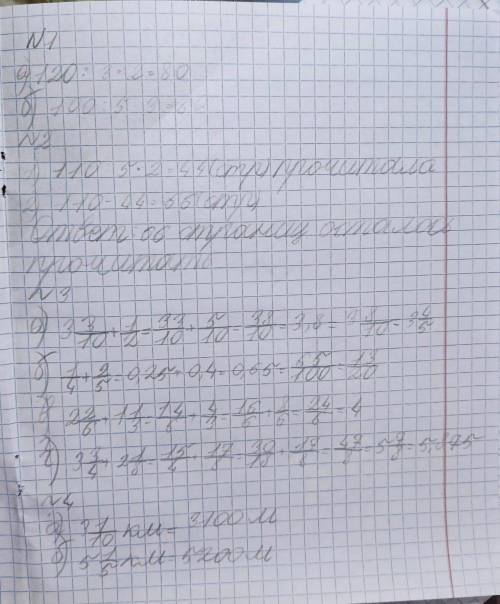 N1
а) 120 : 3 · 2 = 80
б) 100 : 5 · 3 = 60
N2
1) 110 : 5 · 2 = 44 (стр) прочитала
2) 110 - 44 = 66 (стр)
Ответ 66 страниц осталось
прочитать
N3
а) 3 3/10 + 1/2 = 33/10 + 5/10 = 38/10 = 3,8 = 3 8/10 = 3 4/5
б) 1/4 + 2/5 = 0,25 + 0,4 = 0,65 = 65/100 = 13/20
в) 2 2/6 + 1 1/3 = 14/6 + 4/3 = 16/6 + 8/6 = 24/6 = 4
г) 3 3/4 + 2 1/8 = 15/4 + 17/8 = 30/8 + 17/8 = 47/8 = 5 7/8 = 5,875
N4
а) 3 1/10 км = 3100 м
б) 5 1/5 км = 5200 м